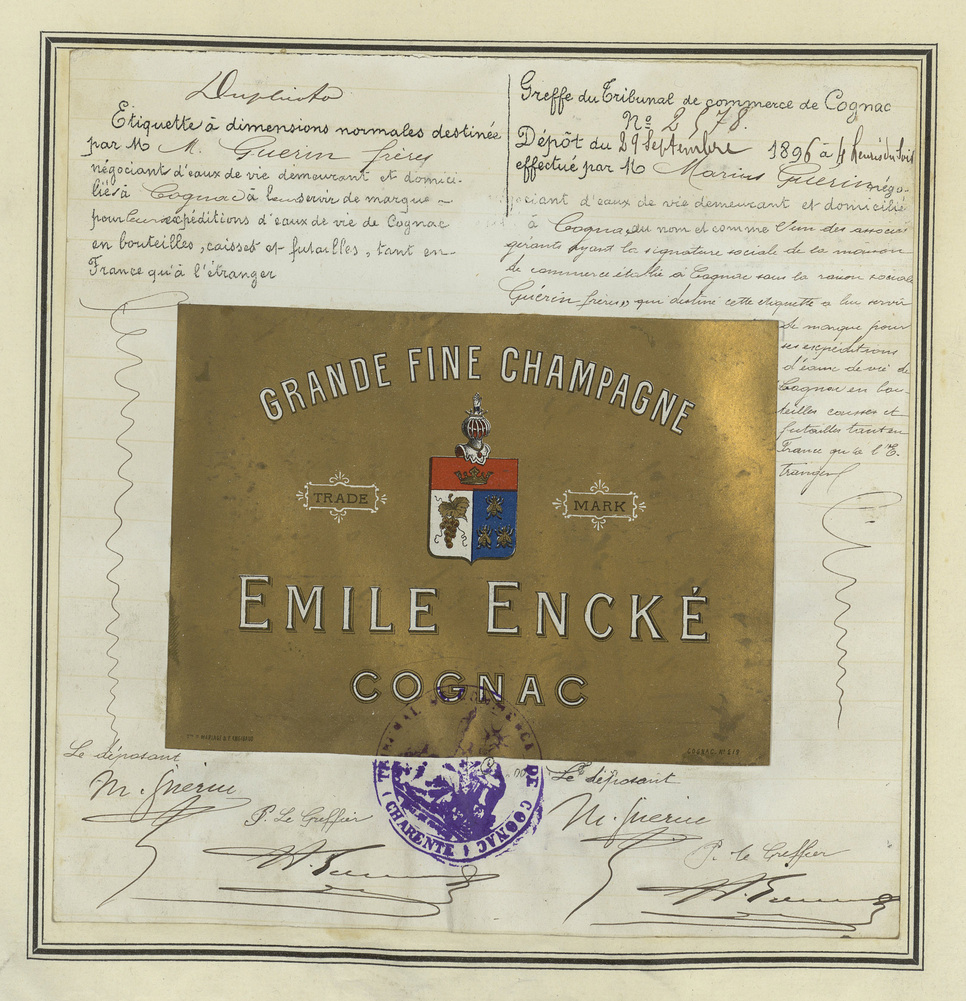 Duplicata
Etiquette à dimensions normales destinée
par M M. Guérin frères
négociant d'eaux de vie demeurant et domici-
lié à Cognac à leur servir de marque
pour leurs expéditions d'eaux de vie de Cognac
en bouteilles, caisses et futailles, tant en
France qu'à l'étranger
Greffe du Tribunal de commerce de Cognac
No 2578.
Dépôt du 29 Septembre 1896 à 4 heures du soir
effectué par M Marius Guerin négo-
ciant d'eaux de vie demeurant et domicilié
à Cognac, au nom et comme l'un des associés
gérants ayant la signature sociale de la maison
de commerce établie à Cognac sous la raison sociale
Guérin frères, qui destine cette étiquette a leur servir
de marque pour
ses expéditions
d'eaux de vie de
Cognac en bou-
teilles caisses et
futailles tant en
France qu'à l'E-
tranger
GRANDE FINE CHAMPAGNE
TRADE MARK
EMILE ENCKÉ
COGNAC
COGNAC. No
Le déposant
M. Guerin
P. Le Greffier
TRIBUNAL DE COMMERCE DE COGNAC
(CHARENTE)
Le déposant
M. Guerin
P. le Greffier